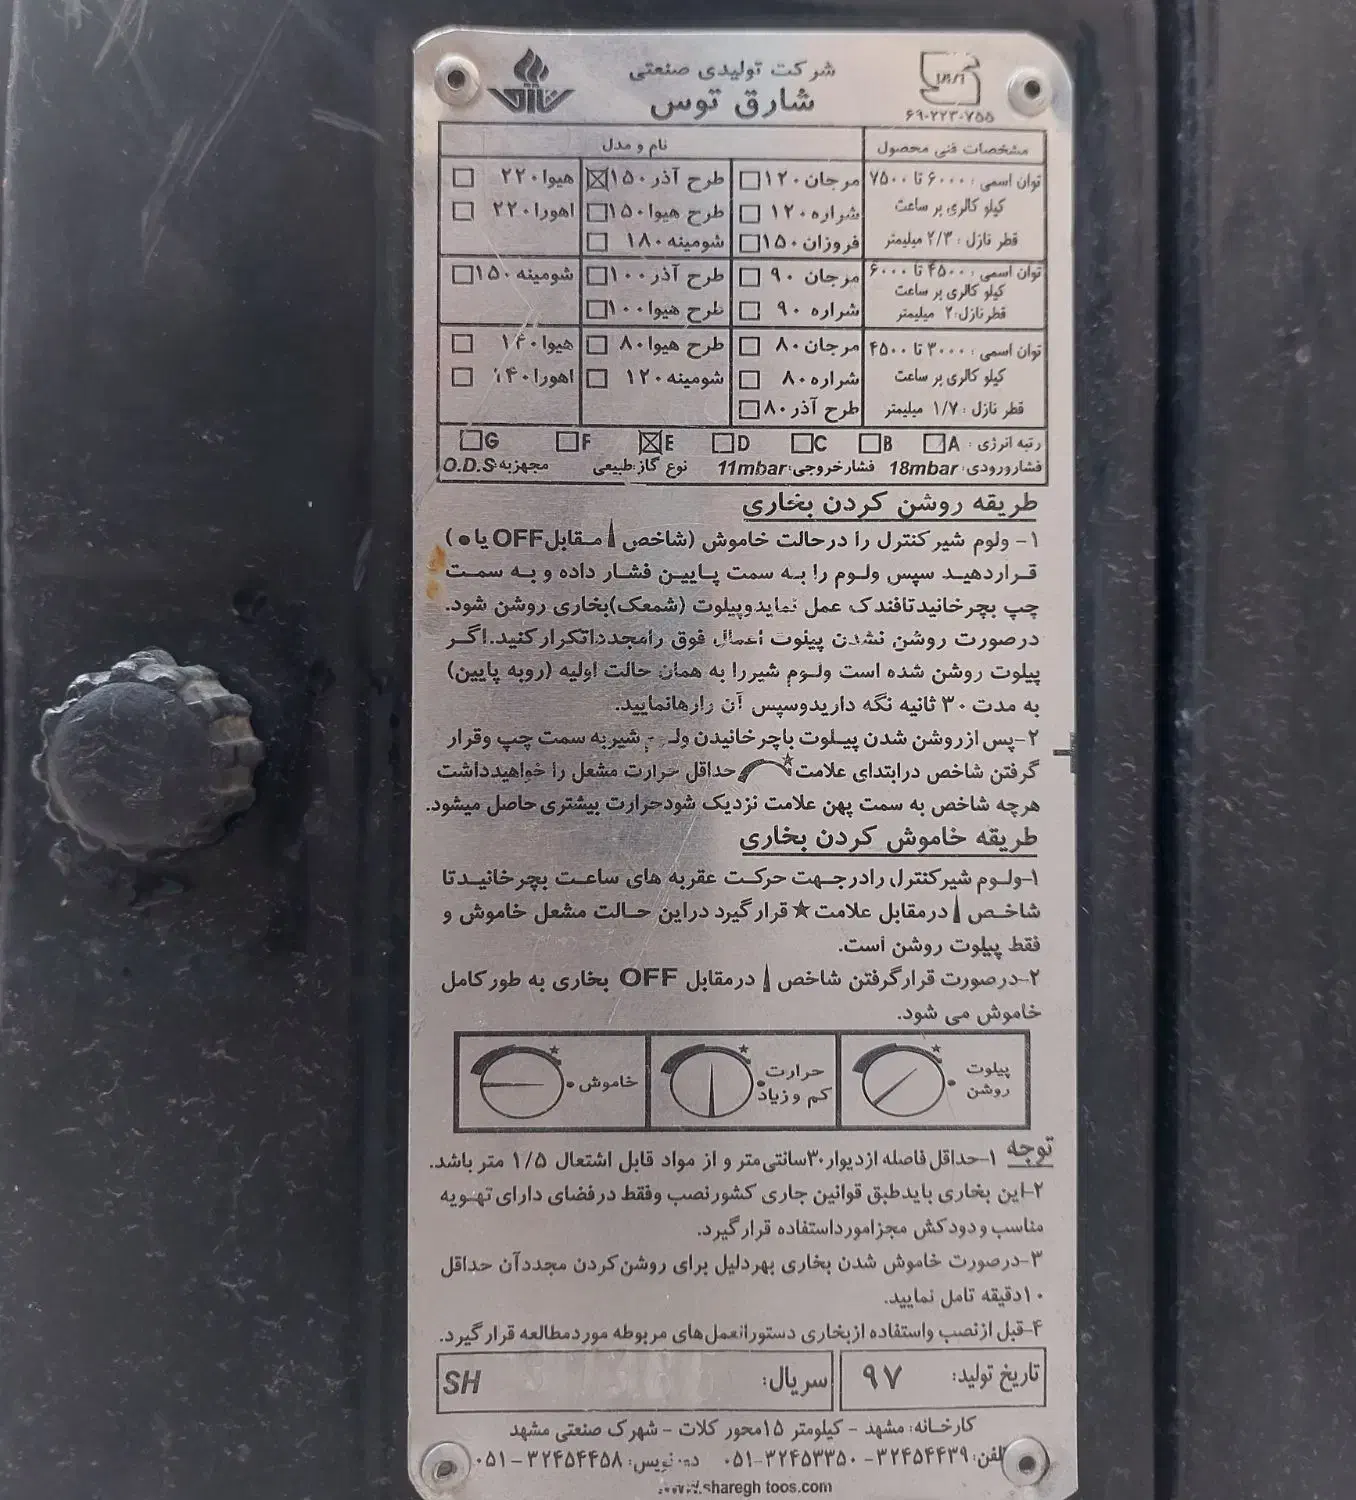 شرکت تولیدی صنعتی
شارق توس
۶۹۰۲۲۳۰۷۵۵
مشخصات فنی محصول
نام و مدل
توان اسمی : ۶۰۰۰ تا ۷۵۰۰
کیلو کالری بر ساعت
قطر نازل : ۲/۳ میلیمتر
مرجان ۱۲۰ □ طرح آذر ۱۵۰ ☒ هیوا ۲۲۰ □
شراره ۱۲۰ □ طرح هیوا ۱۵۰ □ اهورا ۲۲۰ □
فروزان ۱۵۰ □ شومینه ۱۸۰ □
توان اسمی : ۴۵۰۰ تا ۶۰۰۰
کیلو کالری بر ساعت
قطر نازل : ۲ میلیمتر
مرجان ۹۰ □ طرح آذر ۱۰۰ □ شومینه ۱۵۰ □
شراره ۹۰ □ طرح هیوا ۱۰۰ □
توان اسمی : ۳۰۰۰ تا ۴۵۰۰
کیلو کالری بر ساعت
قطر نازل : ۱/۷ میلیمتر
مرجان ۸۰ □ طرح هیوا ۸۰ □ هیوا ۱۴۰ □
شراره ۸۰ □ شومینه ۱۲۰ □ اهورا ۱۴۰ □
طرح آذر ۸۰ □
رتبه انرژی : A □ B □ C □ D □ E ☒ F □ G □
فشارورودی: 18mbar فشارخروجی: 11mbar نوع گاز: طبیعی مجهزبه: O.D.S
طریقه روشن کردن بخاری
۱- ولوم شیر کنترل را درحالت خاموش (شاخص مقابل OFF یا ●)
قراردهید سپس ولوم را به سمت پایین فشار داده و به سمت
چپ بچرخانیدتافندک عمل نمایدوپیلوت (شمعک)بخاری روشن شود.
درصورت روشن نشدن پیلوت اعمال فوق رامجدداتکرارکنید.اگر
پیلوت روشن شده است ولوم شیررا به همان حالت اولیه (روبه پایین)
به مدت ۳۰ ثانیه نگه داریدوسپس آن رارهانمایید.
۲-پس ازروشن شدن پیلوت باچرخانیدن شیربه سمت چپ وقرار
گرفتن شاخص درابتدای علامت حداقل حرارت مشعل را خواهیدداشت
هرچه شاخص به سمت پهن علامت نزدیک شودحرارت بیشتری حاصل میشود.
طریقه خاموش کردن بخاری
۱-ولوم شیرکنترل رادرجهت حرکت عقربه های ساعت بچرخانیدتا
شاخص درمقابل علامت ★ قرارگیرد دراین حالت مشعل خاموش و
فقط پیلوت روشن است.
۲-درصورت قرارگرفتن شاخص درمقابل OFF بخاری به طورکامل
خاموش می شود.
پیلوت روشن
حرارت کم و زیاد
خاموش
توجه ۱-حداقل فاصله ازدیوار۳۰سانتی‌متر و از مواد قابل اشتعال ۱/۵ متر باشد.
۲-این بخاری بایدطبق قوانین جاری کشورنصب وفقط درفضای دارای تهویه
مناسب ودودکش مجزامورداستفاده قرارگیرد.
۳-درصورت خاموش شدن بخاری بهردلیل برای روشن‌کردن مجددآن حداقل
۱۰دقیقه تامل نمایید.
۴-قبل ازنصب واستفاده ازبخاری دستورالعمل‌های مربوطه موردمطالعه قرارگیرد.
تاریخ تولید: ۹۷
سریال: SH
کارخانه: مشهد - کیلومتر ۱۵محور کلات - شهرک صنعتی مشهد
تلفن: ۳۲۴۵۴۴۳۹ - ۳۲۴۵۳۳۵۰-۰۵۱ دورنویس: ۳۲۴۵۴۴۵۸-۰۵۱
www.sharegh toos.com